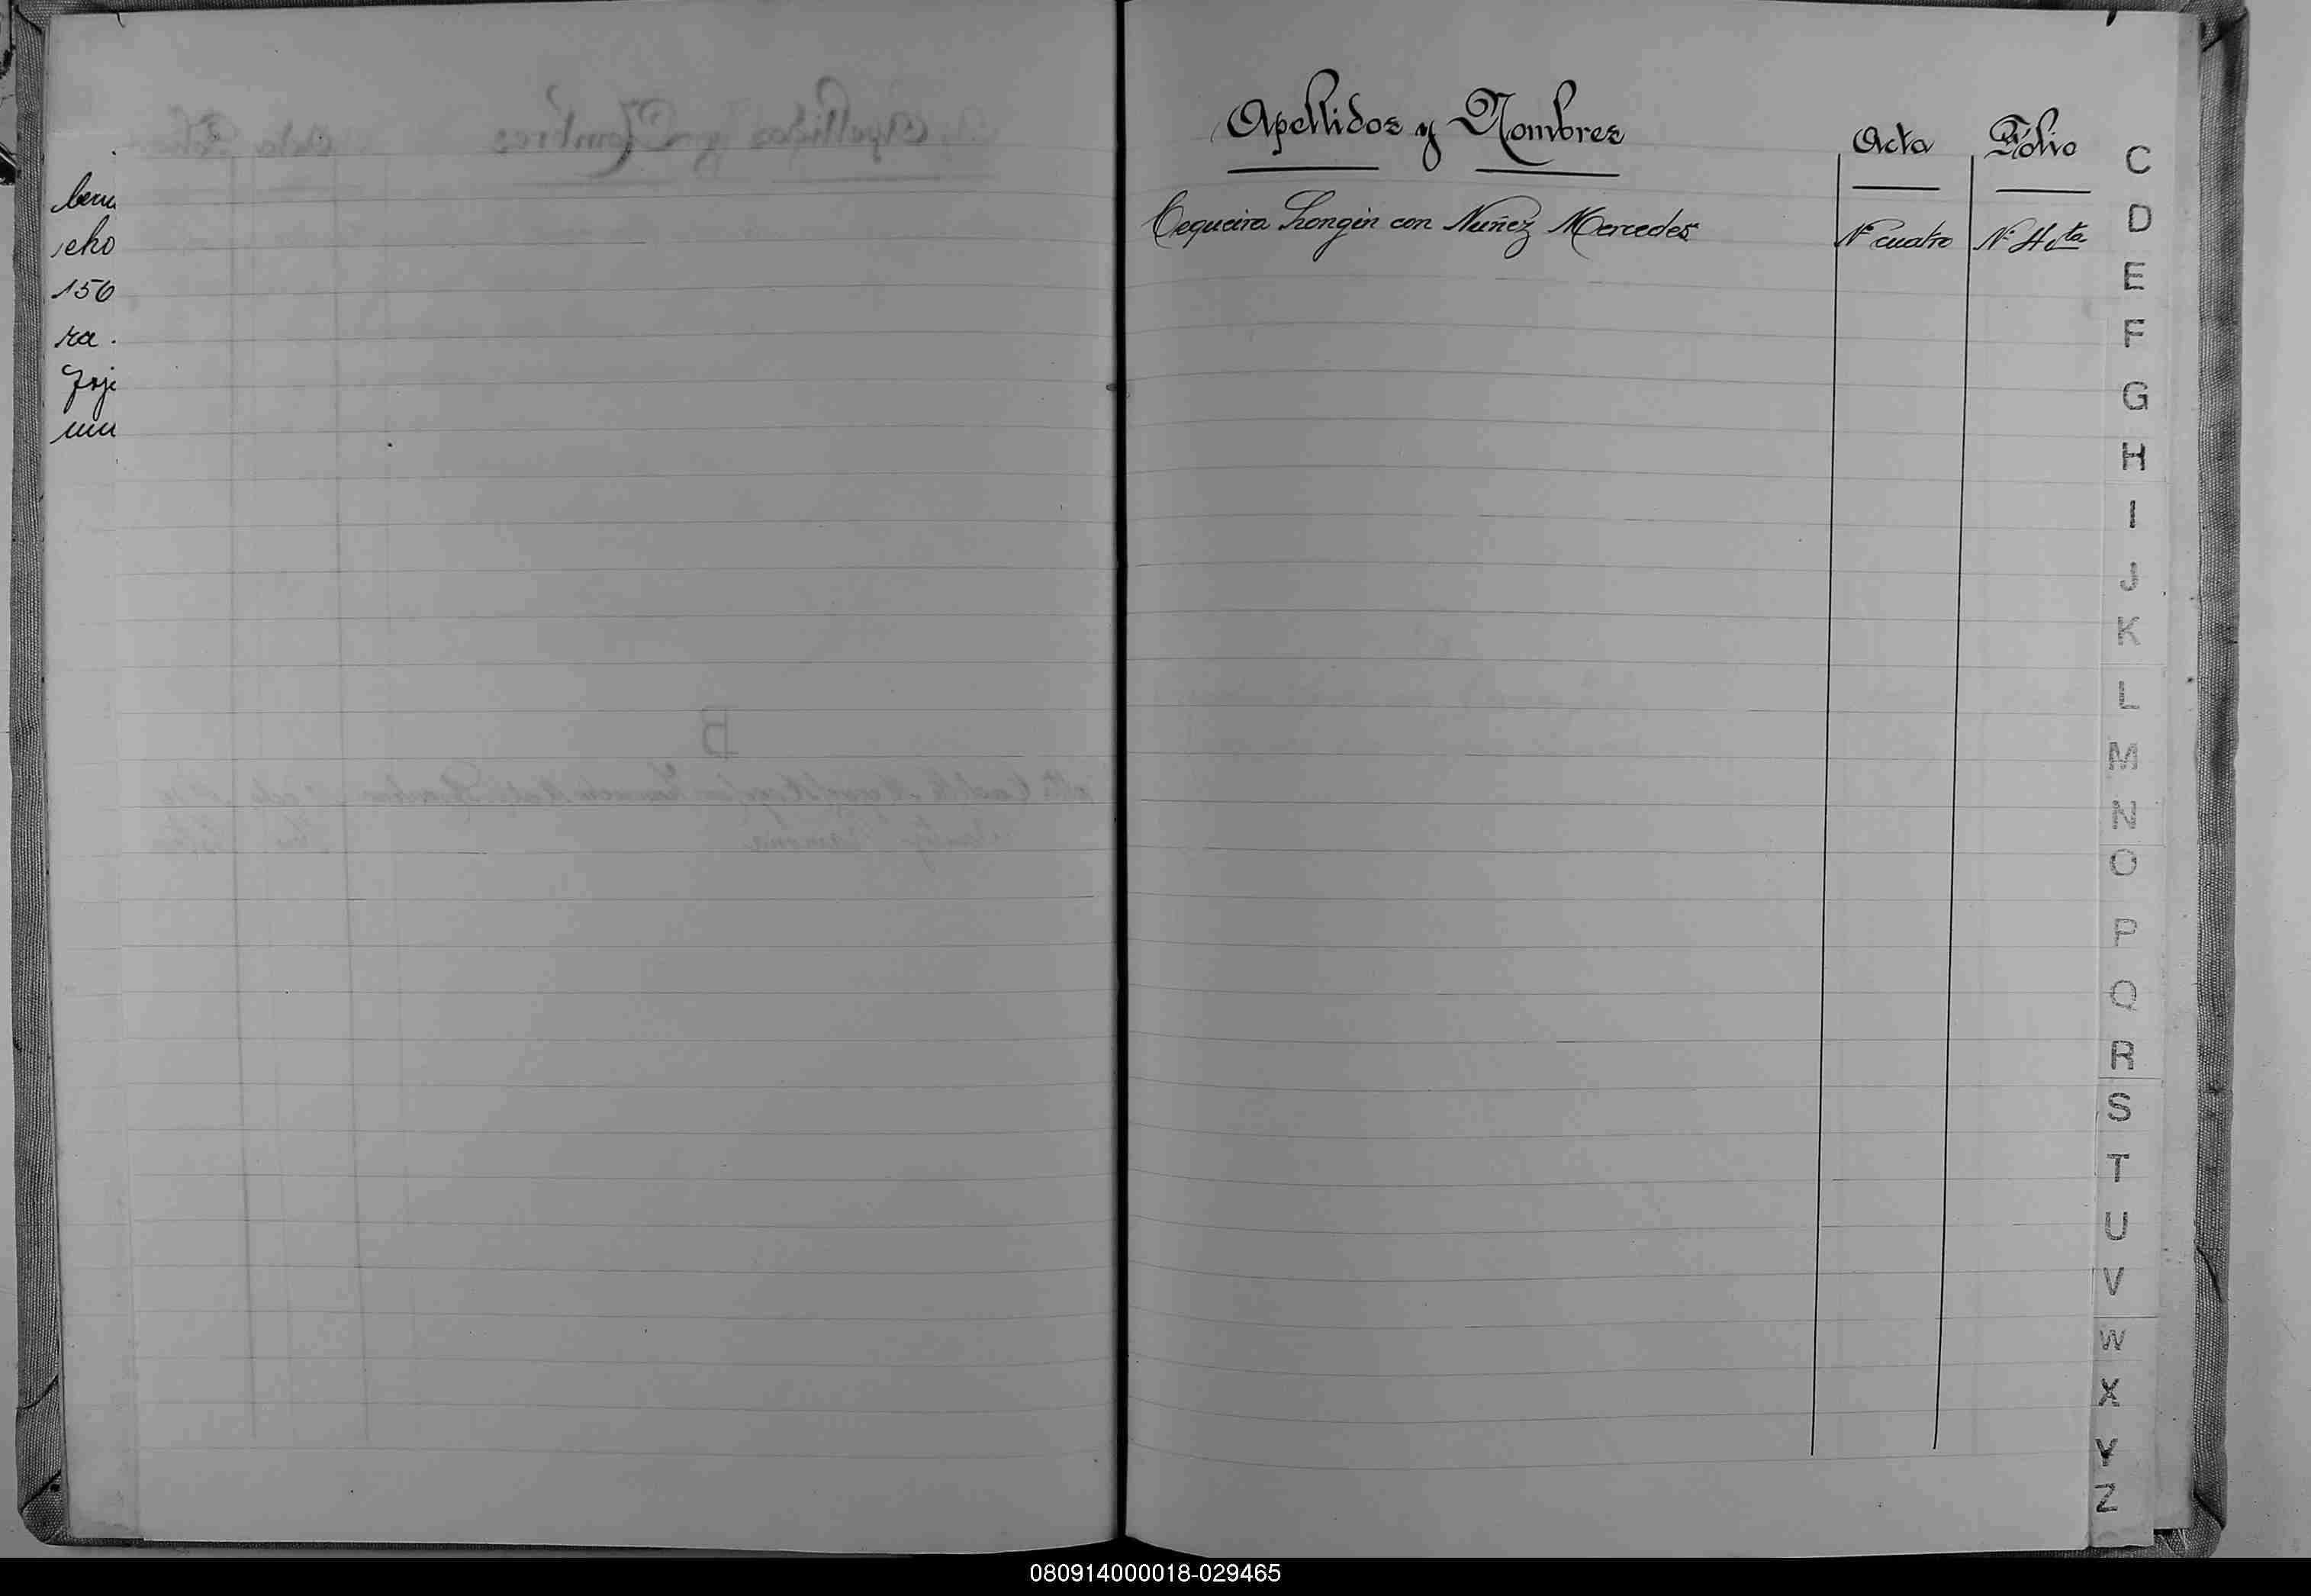 beru
cho
150
ra .
Foje
mu
Apellidos y Nombres
Acta
Fólio
Cequeira Longin con Nuñez Mercedes
Nº cuatro
Nº 4 ta
C
D
E
F
G
H
I
J
K
L
M
N
O
P
Q
R
S
T
U
V
W
X
Y
Z
080914000018-029465